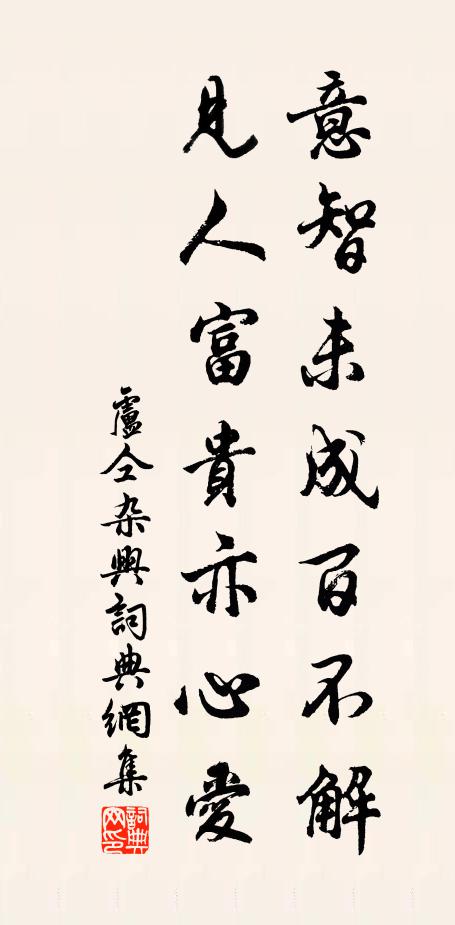 意智未成百不解
見人富貴亦心愛
盧仝杂興詞典網集
詞典
网印